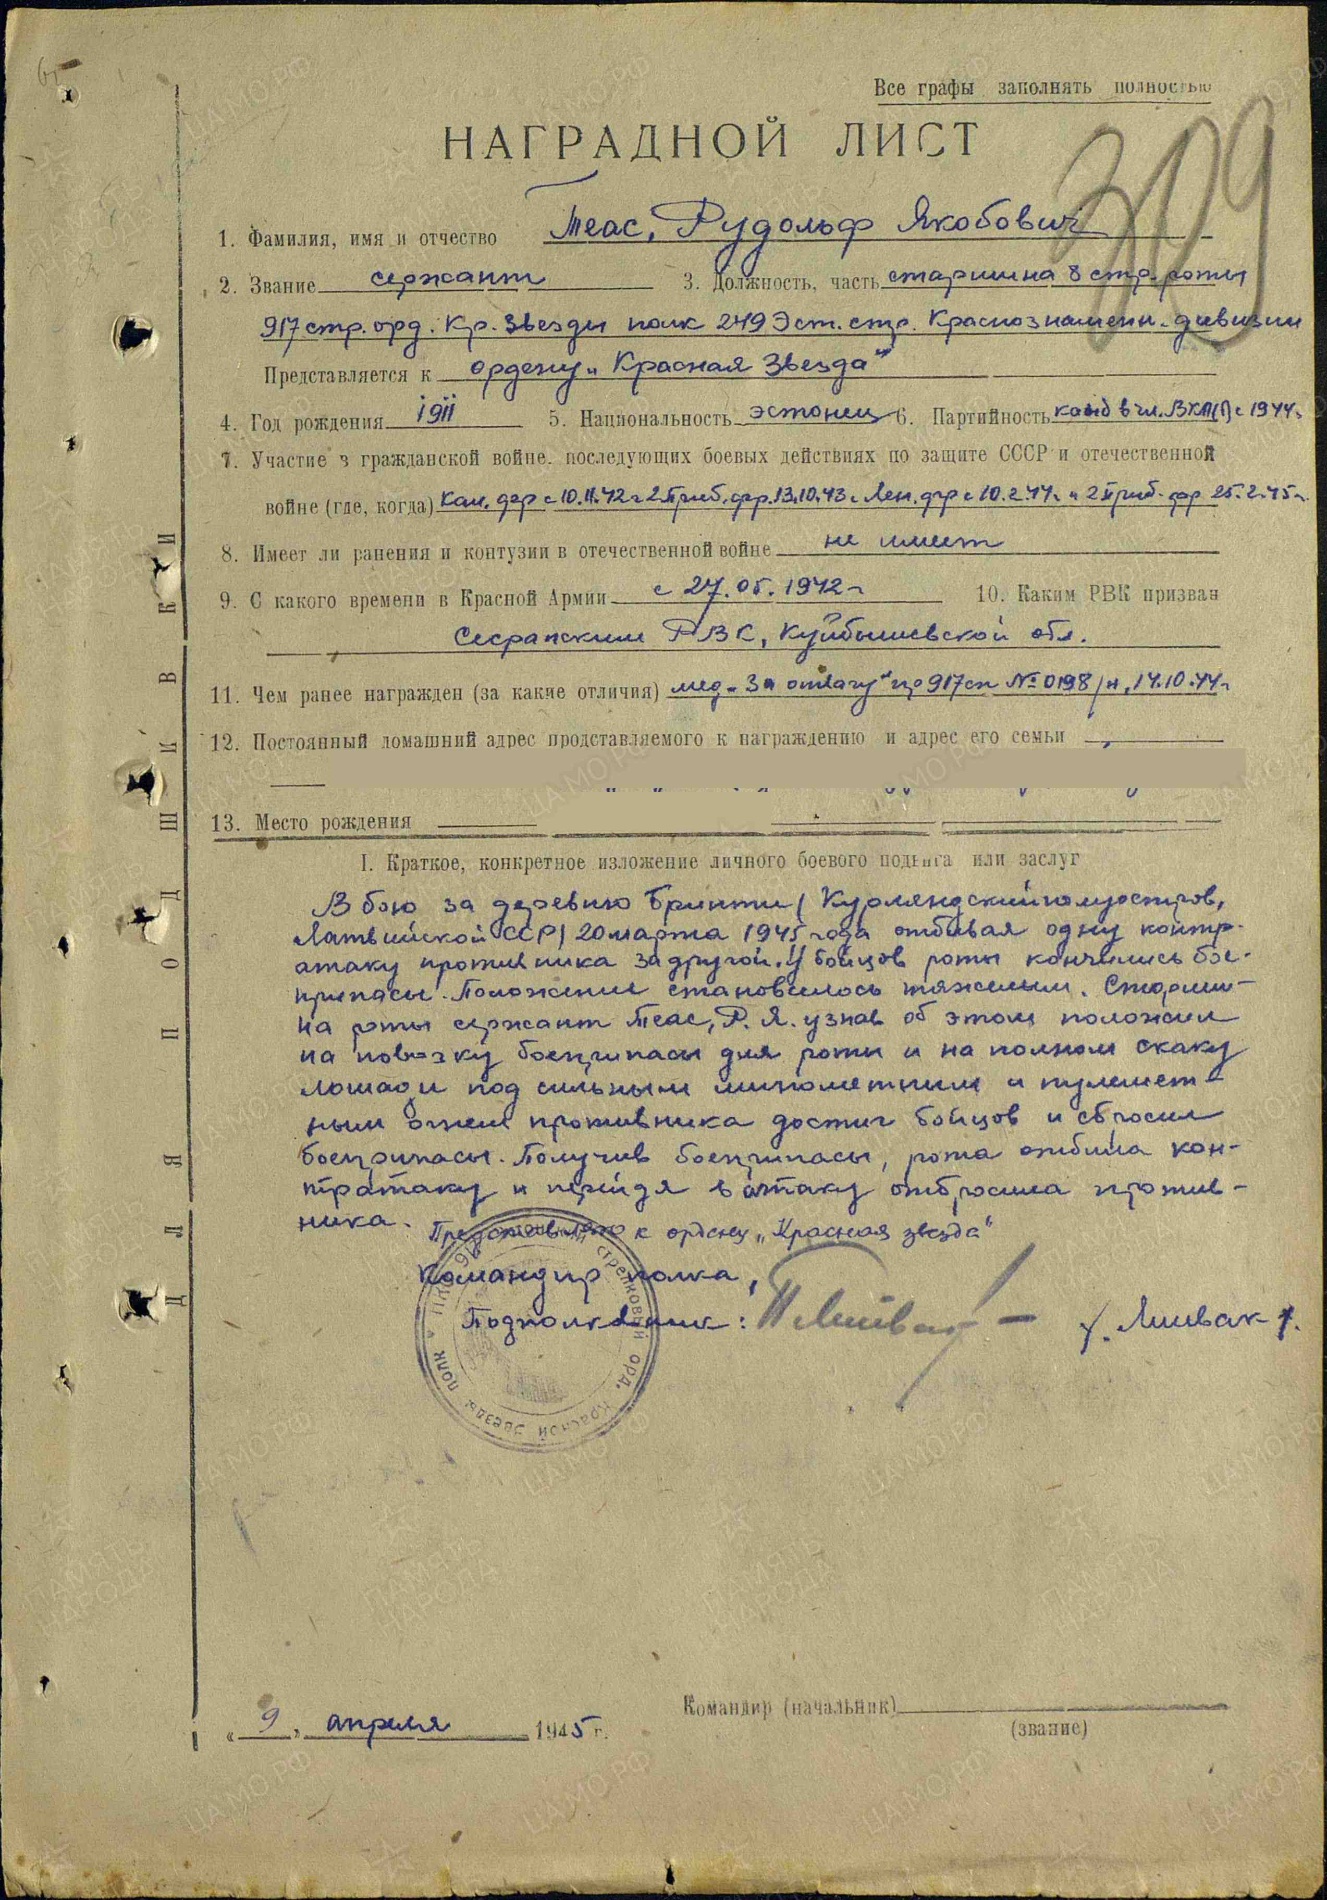 Все графы заполнять полностью
309
НАГРАДНОЙ ЛИСТ
1. Фамилия, имя и отчество Теас, Рудольф Якобович
2. Звание сержант 3. Должность, часть старшина 8 стр. роты
917 стр. орд. Кр. Звезды полк 249 Эст. стр. Краснознаменн. дивизии
Представляется к ордену „Красная Звезда"
4. Год рождения 1911 5. Национальность эстонец 6. Партийность канд в чл. ВКП(б) с 1944г
7. Участие в гражданской войне. последующих боевых действиях по защите СССР и отечественной
войне (где, когда) Кал. фр с 10.11.42г 2 Приб. фр. 13.10.43г Лен. фр с 10.2.44г и 2 Приб. фр 25.2.45г.
8. Имеет ли ранения и контузии в отечественной войне не имеет
9. С какого времени в Красной Армии с 27.05.1942г 10. Каким РВК призван
РВК, Куйбышевской обл.
11. Чем ранее награжден (за какие отличия) мед. „За отвагу" пр 917 сп № 0198/н, 14.10.44г
12. Постоянный домашний адрес продставляемого к награждению и адрес его семьи
13. Место рождения
I. Краткое, конкретное изложение личного боевого подвига или заслуг
В бою за деревню Бринти / Курляндский полуостров,
Латвийской ССР/ 20 марта 1945 года отбивая одну контр-
атаку противника за другой. У бойцов роты кончились бое-
припасы. Положение становилось тяжелым. Старши-
на роты сержант Теас, Р. Я. узнав об этом положил
на повозку боеприпасы для роты и на полном скаку
лошади под сильным минометным и пулемет-
ным огнем противника достиг бойцов и сбросил
боеприпасы. Получив боеприпасы, рота отбила кон-
тратаку и перейдя в атаку отбросила против-
ника.
Представляю к ордену „Красная звезда"
Командир полка,
Подполковник:
стрелковый орд. Красной Звезды полк
„ 9 " апреля 1945 г.
Командир (начальник)
(звание)
ДЛЯ ПОДШИВКИ
ПАМЯТЬ НАРОДА
ЦА МО РФ